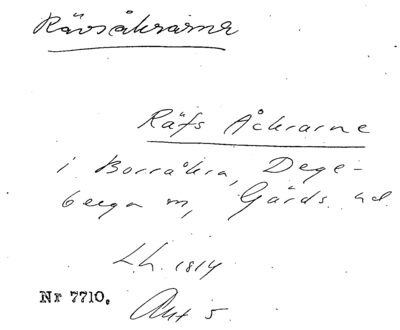 Rävsåkrarna
Räfs Åckrarne
i Borråkra, Dege-
berga m, Gärds hd
Lh. 1814
Nr 7710. Akt 5